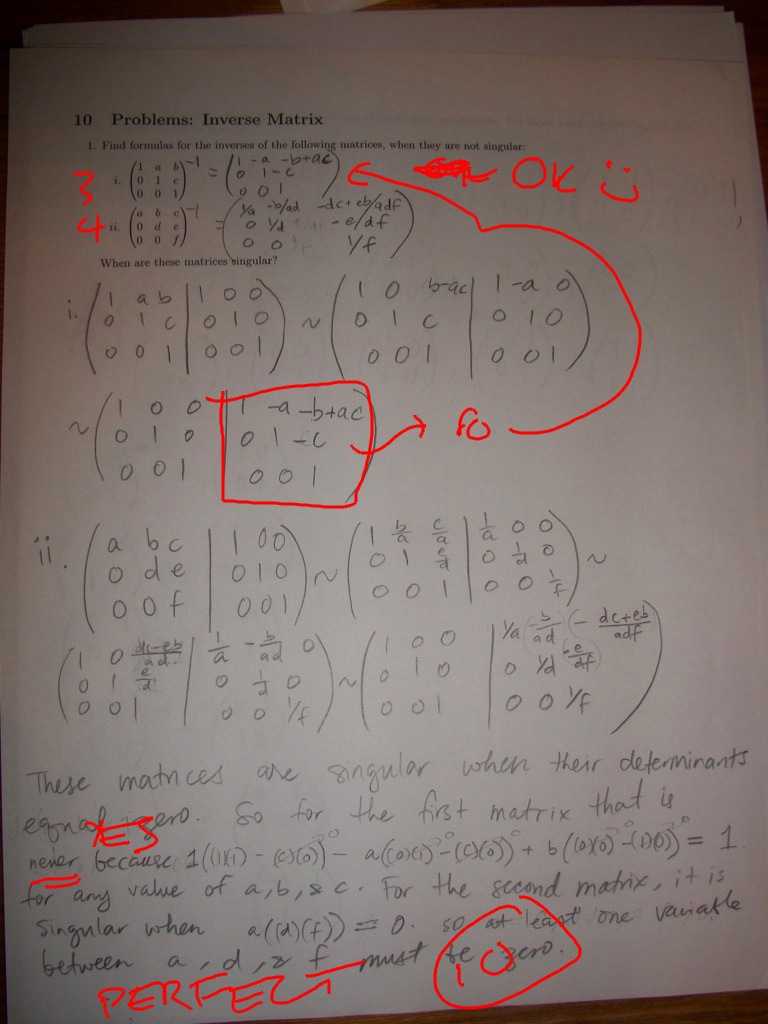 10 Problems: Inverse Matrix
1. Find formulas for the inverses of the following matrices, when they are not singular:
3 i. (1 a b; 0 1 c; 0 0 1)^-1 = (1 -a -b+ac; 0 1 -c; 0 0 1) OK
4 ii. (a b c; 0 d e; 0 0 f)^-1 = (1/a -b/ad -dc+eb/adf; 0 1/d -e/df; 0 0 1/f)
When are these matrices singular?
i. (1 a b | 1 0 0; 0 1 c | 0 1 0; 0 0 1 | 0 0 1) ~ (1 0 b-ac | 1 -a 0; 0 1 c | 0 1 0; 0 0 1 | 0 0 1)
~ (1 0 0 | 1 -a -b+ac; 0 1 0 | 0 1 -c; 0 0 1 | 0 0 1)
ii. (a b c | 1 0 0; 0 d e | 0 1 0; 0 0 f | 0 0 1) ~ (1 b/a c/a | 1/a 0 0; 0 1 e/d | 0 1/d 0; 0 0 1 | 0 0 1/f) ~
(1 0 dc-eb/ad | 1/a -b/ad 0; 0 1 e/d | 0 1/d 0; 0 0 1 | 0 0 1/f) ~ (1 0 0 | 1/a -b/ad (-dc+eb/adf; 0 1 0 | 0 1/d -e/df; 0 0 1 | 0 0 1/f)
These matrices are singular when their determinants
equal zero. So for the first matrix that is
YES
never, because 1((1)(1) - (c)(0))^0 - a((0)(1) - (c)(0))^0 + b((0)(0) - (1)(0))^0 = 1
for any value of a, b, & c. For the second matrix, it is
singular when a((d)(f)) = 0. so at least one variable
between a, d, & f must be zero.
PERFECT 10